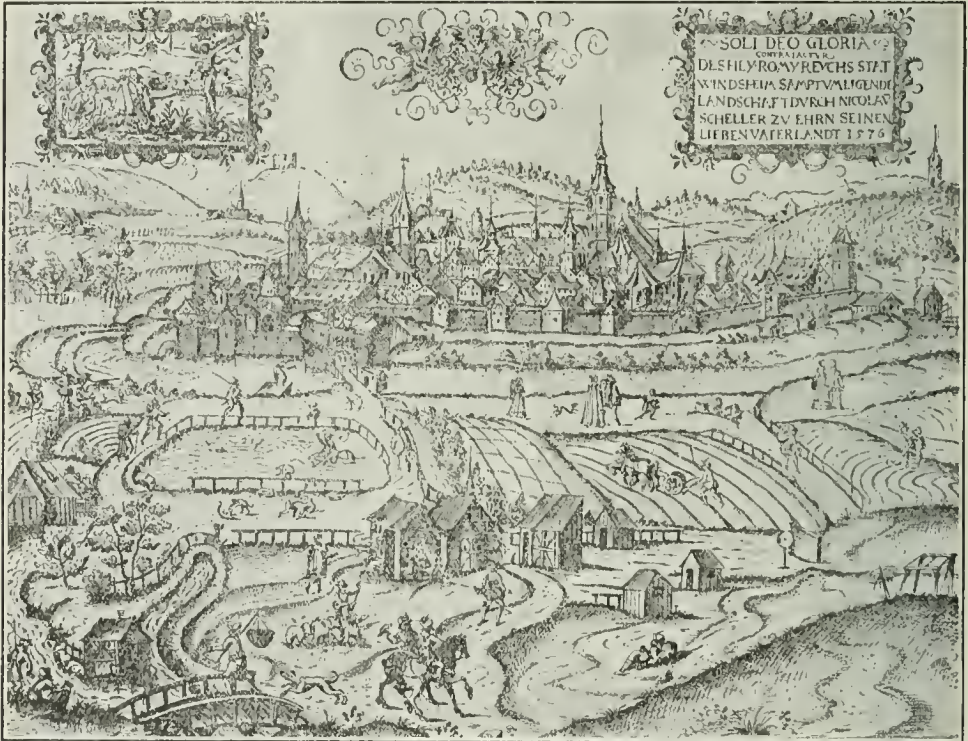 SOLI DEO GLORIA
CONTRAFACTUR
DES HLY· ROMY REYCHS STAT
WINDSHEIM SAMPT VMLIGENDE
LANDSCHAFT DVRCH NICOLAV
SCHELLER ZV EHRN SEINEN
LIEBEN VATERLANDT 1576